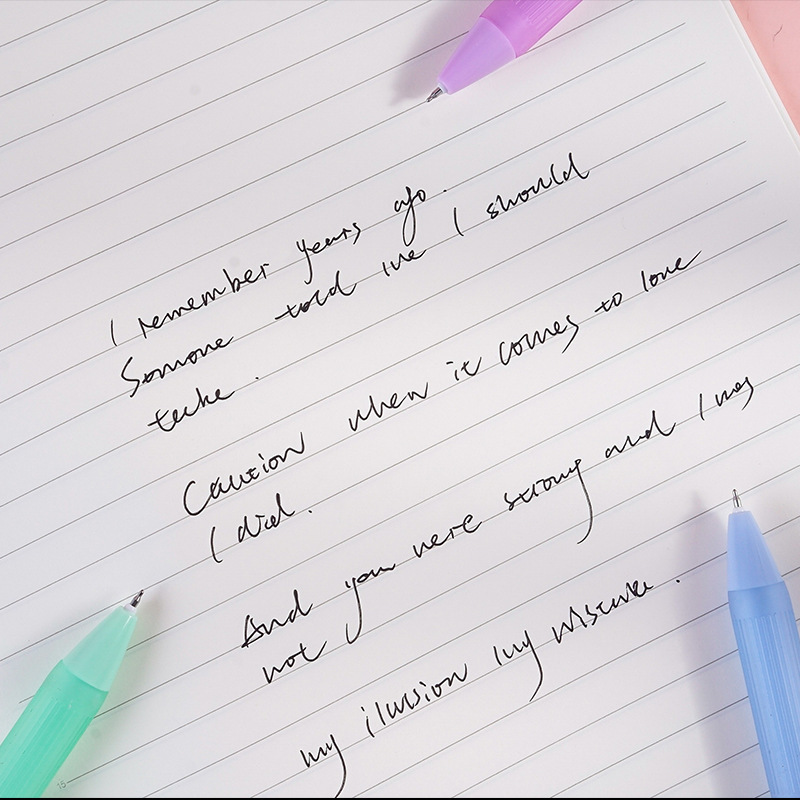 I remember years ago.
Somone told me I should
take.
Caution when it comes to love
I did.
And you were strong and I was
not
my ilusion my mistake.
15